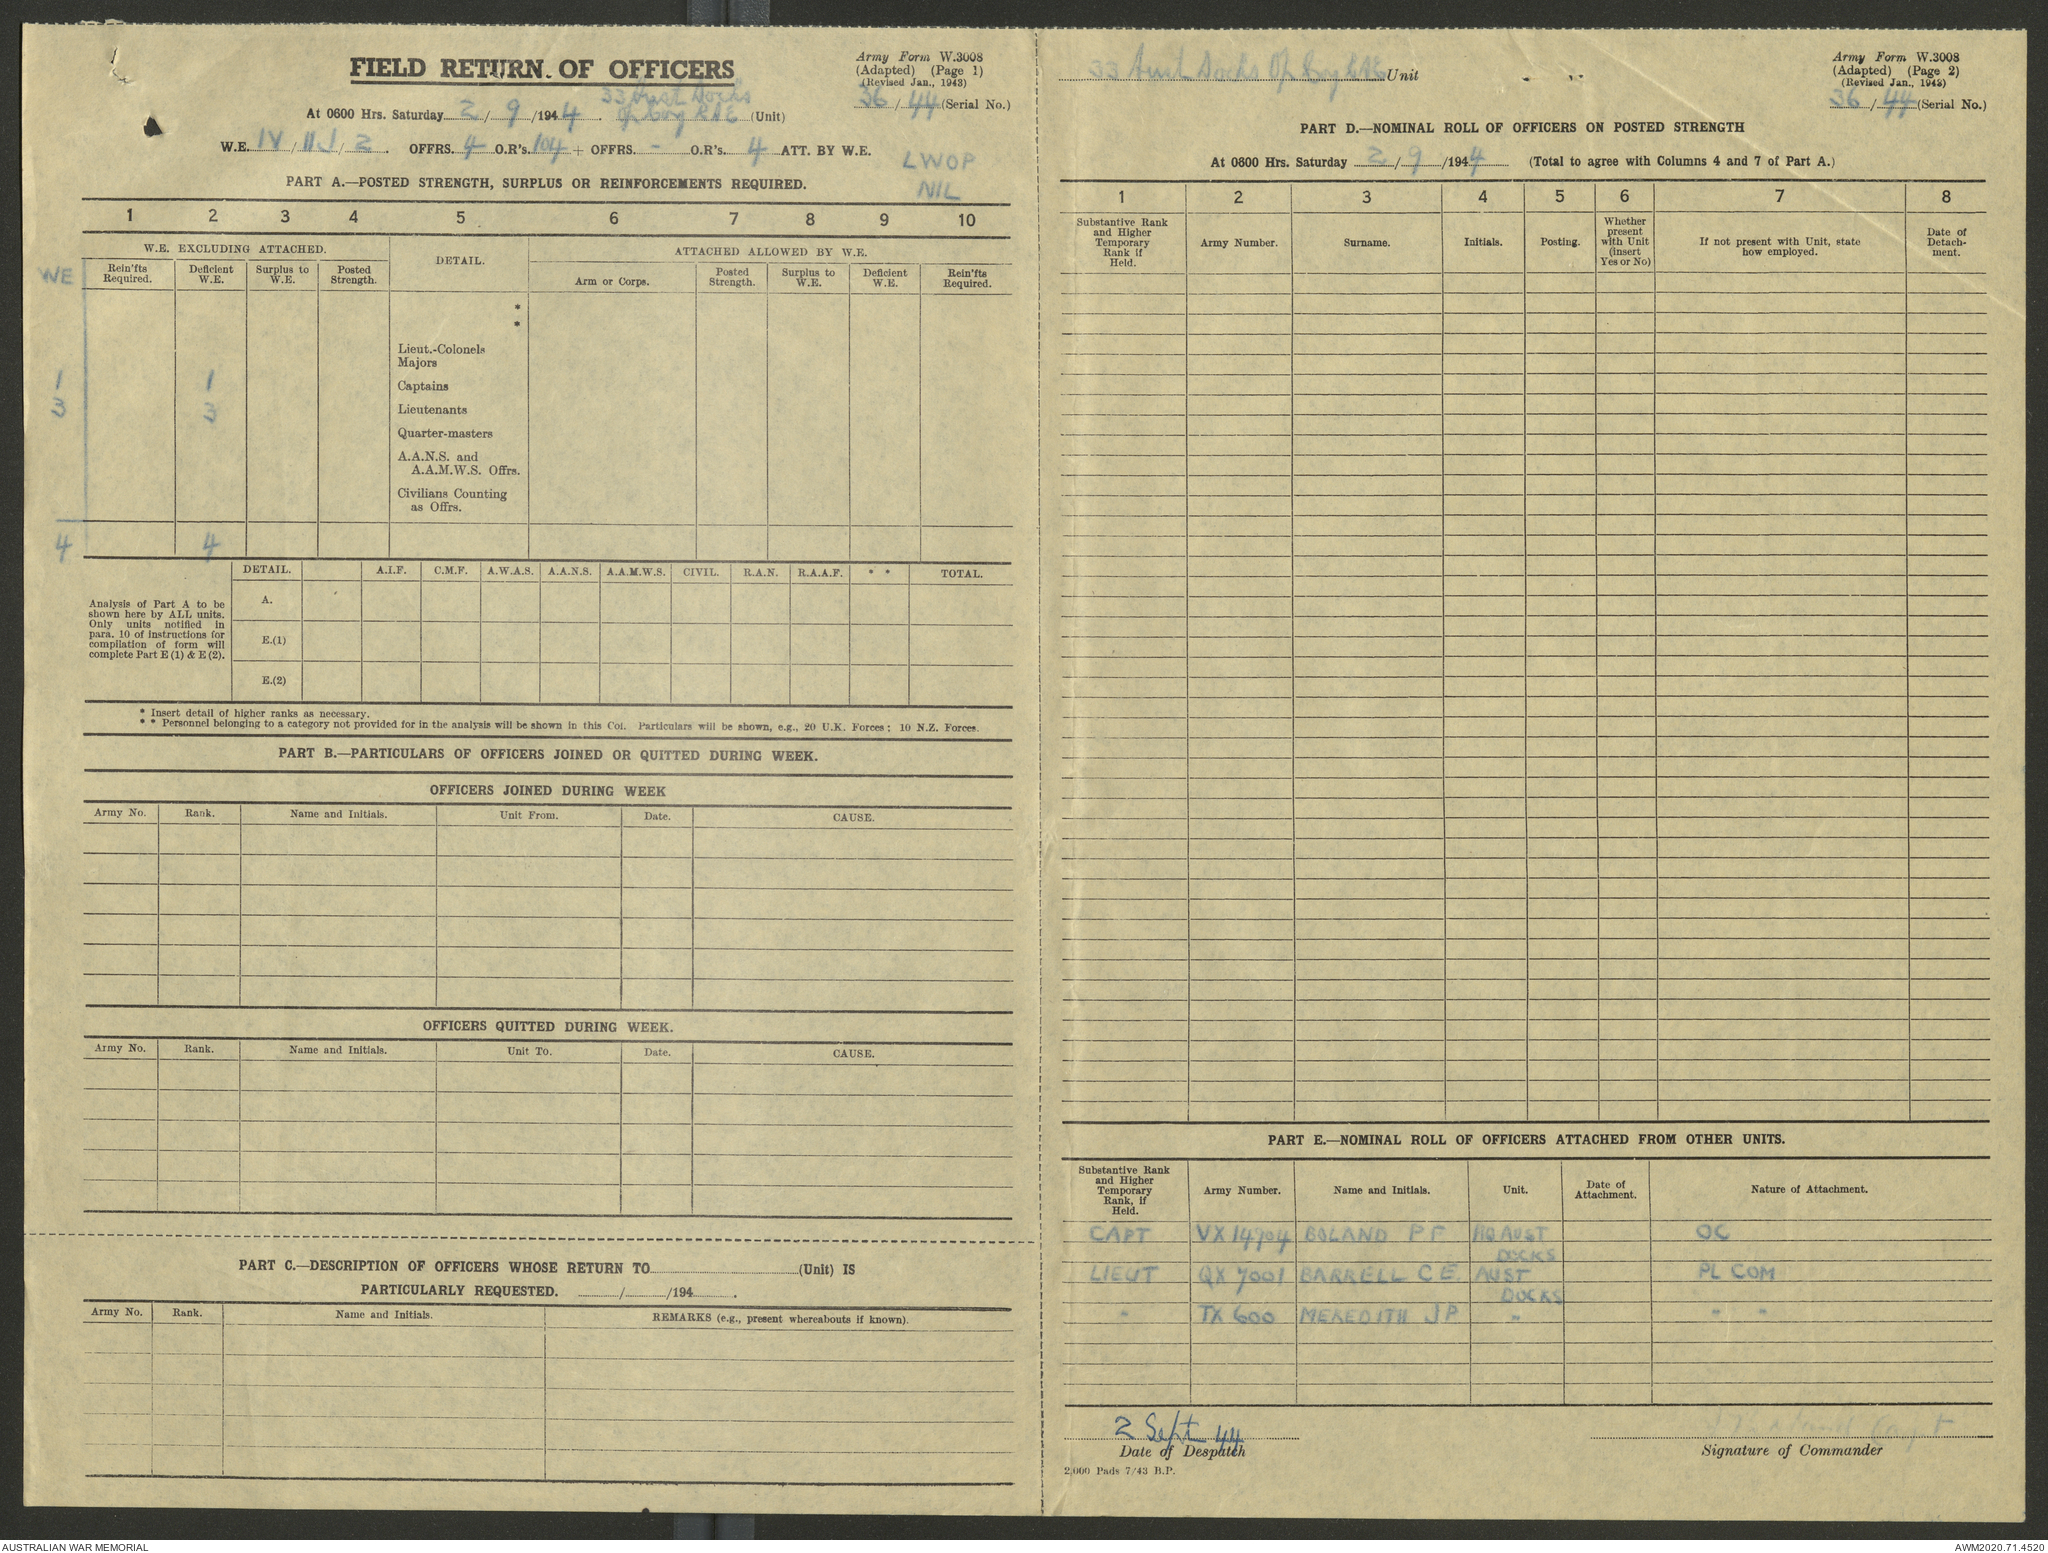 FIELD RETURN OF OFFICERS
Army Form W.3008
(Adapted) (Page 1)
(Revised Jan., 1943)
36/44 (Serial No.)
33 Aust Docks
At 0600 Hrs. Saturday 2/9/1944. Op Coy RAE (Unit)
W.E. IV/II J/2. OFFRS. 4 O.R's. 104 + OFFRS. - O.R's. 4 ATT. BY W.E.
LWOP
NIL
PART A.—POSTED STRENGTH, SURPLUS OR REINFORCEMENTS REQUIRED.
1 2 3 4 5 6 7 8 9 10
W.E. EXCLUDING ATTACHED. DETAIL. ATTACHED ALLOWED BY W.E.
WE Rein'fts Required. Deficient W.E. Surplus to W.E. Posted Strength. Arm or Corps. Posted Strength. Surplus to W.E. Deficient W.E. Rein'fts Required.
*
*
Lieut.-Colonels
Majors
1 1 Captains
3 3 Lieutenants
Quarter-masters
A.A.N.S. and
A.A.M.W.S. Offrs.
Civilians Counting
as Offrs.
4 4
DETAIL. A.I.F. C.M.F. A.W.A.S. A.A.N.S. A.A.M.W.S. CIVIL. R.A.N. R.A.A.F. * * TOTAL.
Analysis of Part A to be
shown here by ALL units.
Only units notified in
para. 10 of instructions for
compilation of form will
complete Part E (1) & E (2).
A.
E.(1)
E.(2)
* Insert detail of higher ranks as necessary.
* * Personnel belonging to a category not provided for in the analysis will be shown in this Col. Particulars will be shown, e.g., 20 U.K. Forces; 10 N.Z. Forces.
PART B.—PARTICULARS OF OFFICERS JOINED OR QUITTED DURING WEEK.
OFFICERS JOINED DURING WEEK
Army No. Rank. Name and Initials. Unit From. Date. CAUSE.
OFFICERS QUITTED DURING WEEK.
Army No. Rank. Name and Initials. Unit To. Date. CAUSE.
PART C.—DESCRIPTION OF OFFICERS WHOSE RETURN TO (Unit) IS
PARTICULARLY REQUESTED. / /194 .
Army No. Rank. Name and Initials. REMARKS (e.g., present whereabouts if known).
33 Aust Docks Op Coy RAE Unit
Army Form W.3008
(Adapted) (Page 2)
(Revised Jan., 1943)
36/44 (Serial No.)
PART D.—NOMINAL ROLL OF OFFICERS ON POSTED STRENGTH
At 0600 Hrs. Saturday 2/9/1944 (Total to agree with Columns 4 and 7 of Part A.)
1 2 3 4 5 6 7 8
Substantive Rank and Higher Temporary Rank if Held. Army Number. Surname. Initials. Posting. Whether present with Unit (insert Yes or No) If not present with Unit, state how employed. Date of Detach-ment.
PART E.—NOMINAL ROLL OF OFFICERS ATTACHED FROM OTHER UNITS.
Substantive Rank and Higher Temporary Rank, if Held. Army Number. Name and Initials. Unit. Date of Attachment. Nature of Attachment.
CAPT VX 14904 BOLAND P F HQ AUST OC
DOCKS
LIEUT QX 7001 BARRELL C E. AUST PL COM
DOCKS
" TX 600 MEREDITH J P " " "
2 Sept 44
Date of Despatch
Capt
Signature of Commander
2,000 Pads 7/43 B.P.
AUSTRALIAN WAR MEMORIAL
AWM2020.71.4520